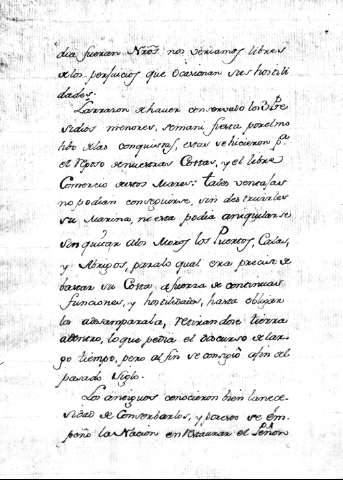 dia fueran Nros. nos veriamos libres
de los perjuicios que ocacionan sus hostili
dades.
La razon de haver conservado los 3 Pre
sidios menores, se manifiesta por el mo
tibo de las conquistas, estas se hicieron pa.
el reposo de nuestras Costas, y el libre
Comercio de estos Mares: tales ventajas
no podian conseguirse, sin destruirles
su Marina, ni esta podia aniquilarse
sin quitar a los Moros los Puertos, Calas,
y Abrigos, para lo qual era preciso se
barear su Costa a fuerza de continuas
funciones, y hostilidades, hasta obligar
los a desampararla, retirandose tierra
adentro, lo que pedia el discurso de lar
go tiempo, pero al fin se consiguió a fin del
pasado Siglo.
Los antiguos conocieron bien la nece
sidad de Conserbarlos, y por eso se em
peño la Nacion en restaurar el Peñon